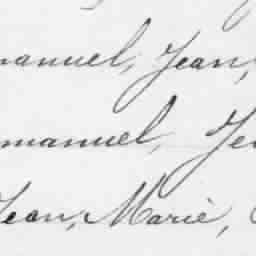 manuel, Jean,
manuel, Je
Jean, Marie,